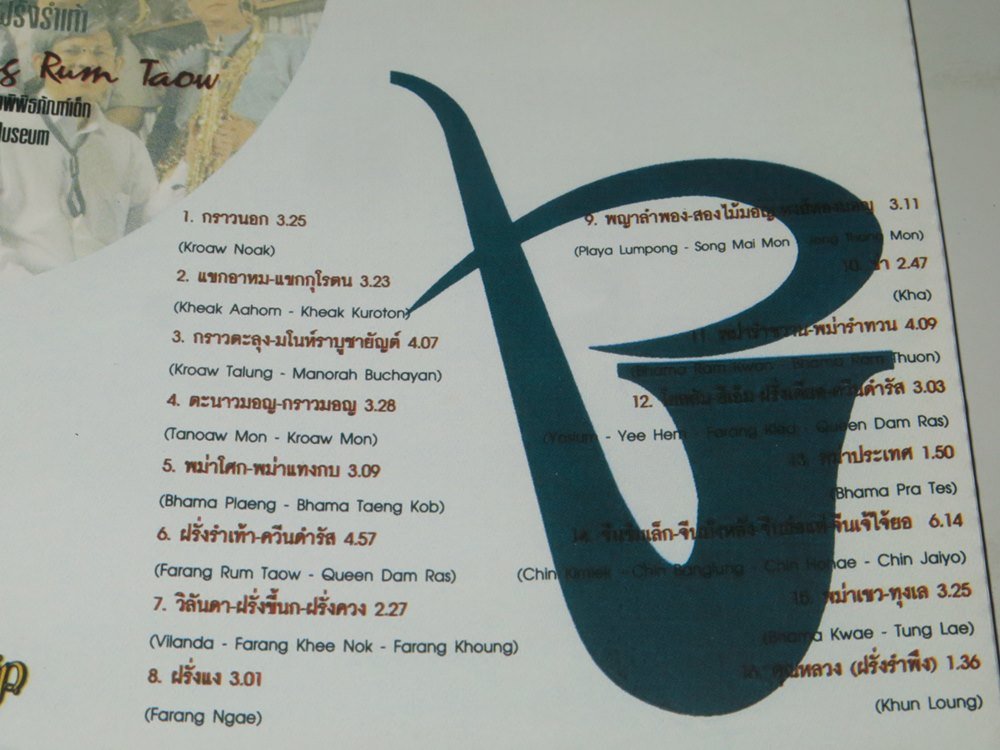 ฝรั่งรำเท้า
Rum Taow
พิพิธภัณฑ์เด็ก
Museum
1. กราวนอก 3.25
(Kroaw Noak)
2. แขกอาหม-แขกกุโรตน 3.23
(Kheak Aahom - Kheak Kuroton)
3. กราวตะลุง-มโนห์ราบูชายัญต์ 4.07
(Kroaw Talung - Manorah Buchayan)
4. ตะนาวมอญ-กราวมอญ 3.28
(Tanoaw Mon - Kroaw Mon)
5. พม่าโศก-พม่าแทงกบ 3.09
(Bhama Plaeng - Bhama Taeng Kob)
6. ฝรั่งรำเท้า-ควีนดำรัส 4.57
(Farang Rum Taow - Queen Dam Ras)
7. วิลันดา-ฝรั่งขี้นก-ฝรั่งควง 2.27
(Vilanda - Farang Khee Nok - Farang Khoung)
8. ฝรั่งแง 3.01
(Farang Ngae)
9. พญาลำพอง-สองไม้มอญ 3.11
(Playa Lumpong - Song Mai Mon - Mon)
10. ข่า 2.47
(Kha)
11. พม่ารำขวาน-พม่ารำทวน 4.09
(Bhama Ram Kwan - Bhama Ram Thuon)
12. ฝรั่งเดียด-ควีนดำรัส 3.03
- Yee Hem - Farang - Queen Dam Ras)
13. พม่าประเทศ 1.50
(Bhama Pra Tes)
14. จีนขิมเล็ก-จีนเจ้ไจ้ยอ 6.14
(Chin Kimlek - Chin Banglung - Chin Hohae - Chin Jaiyo)
15. พม่าเขว-ทุงเล 3.25
(Bhama Kwae - Tung Lae)
16. คุณหลวง (ฝรั่งรำพึง) 1.36
(Khun Loung)